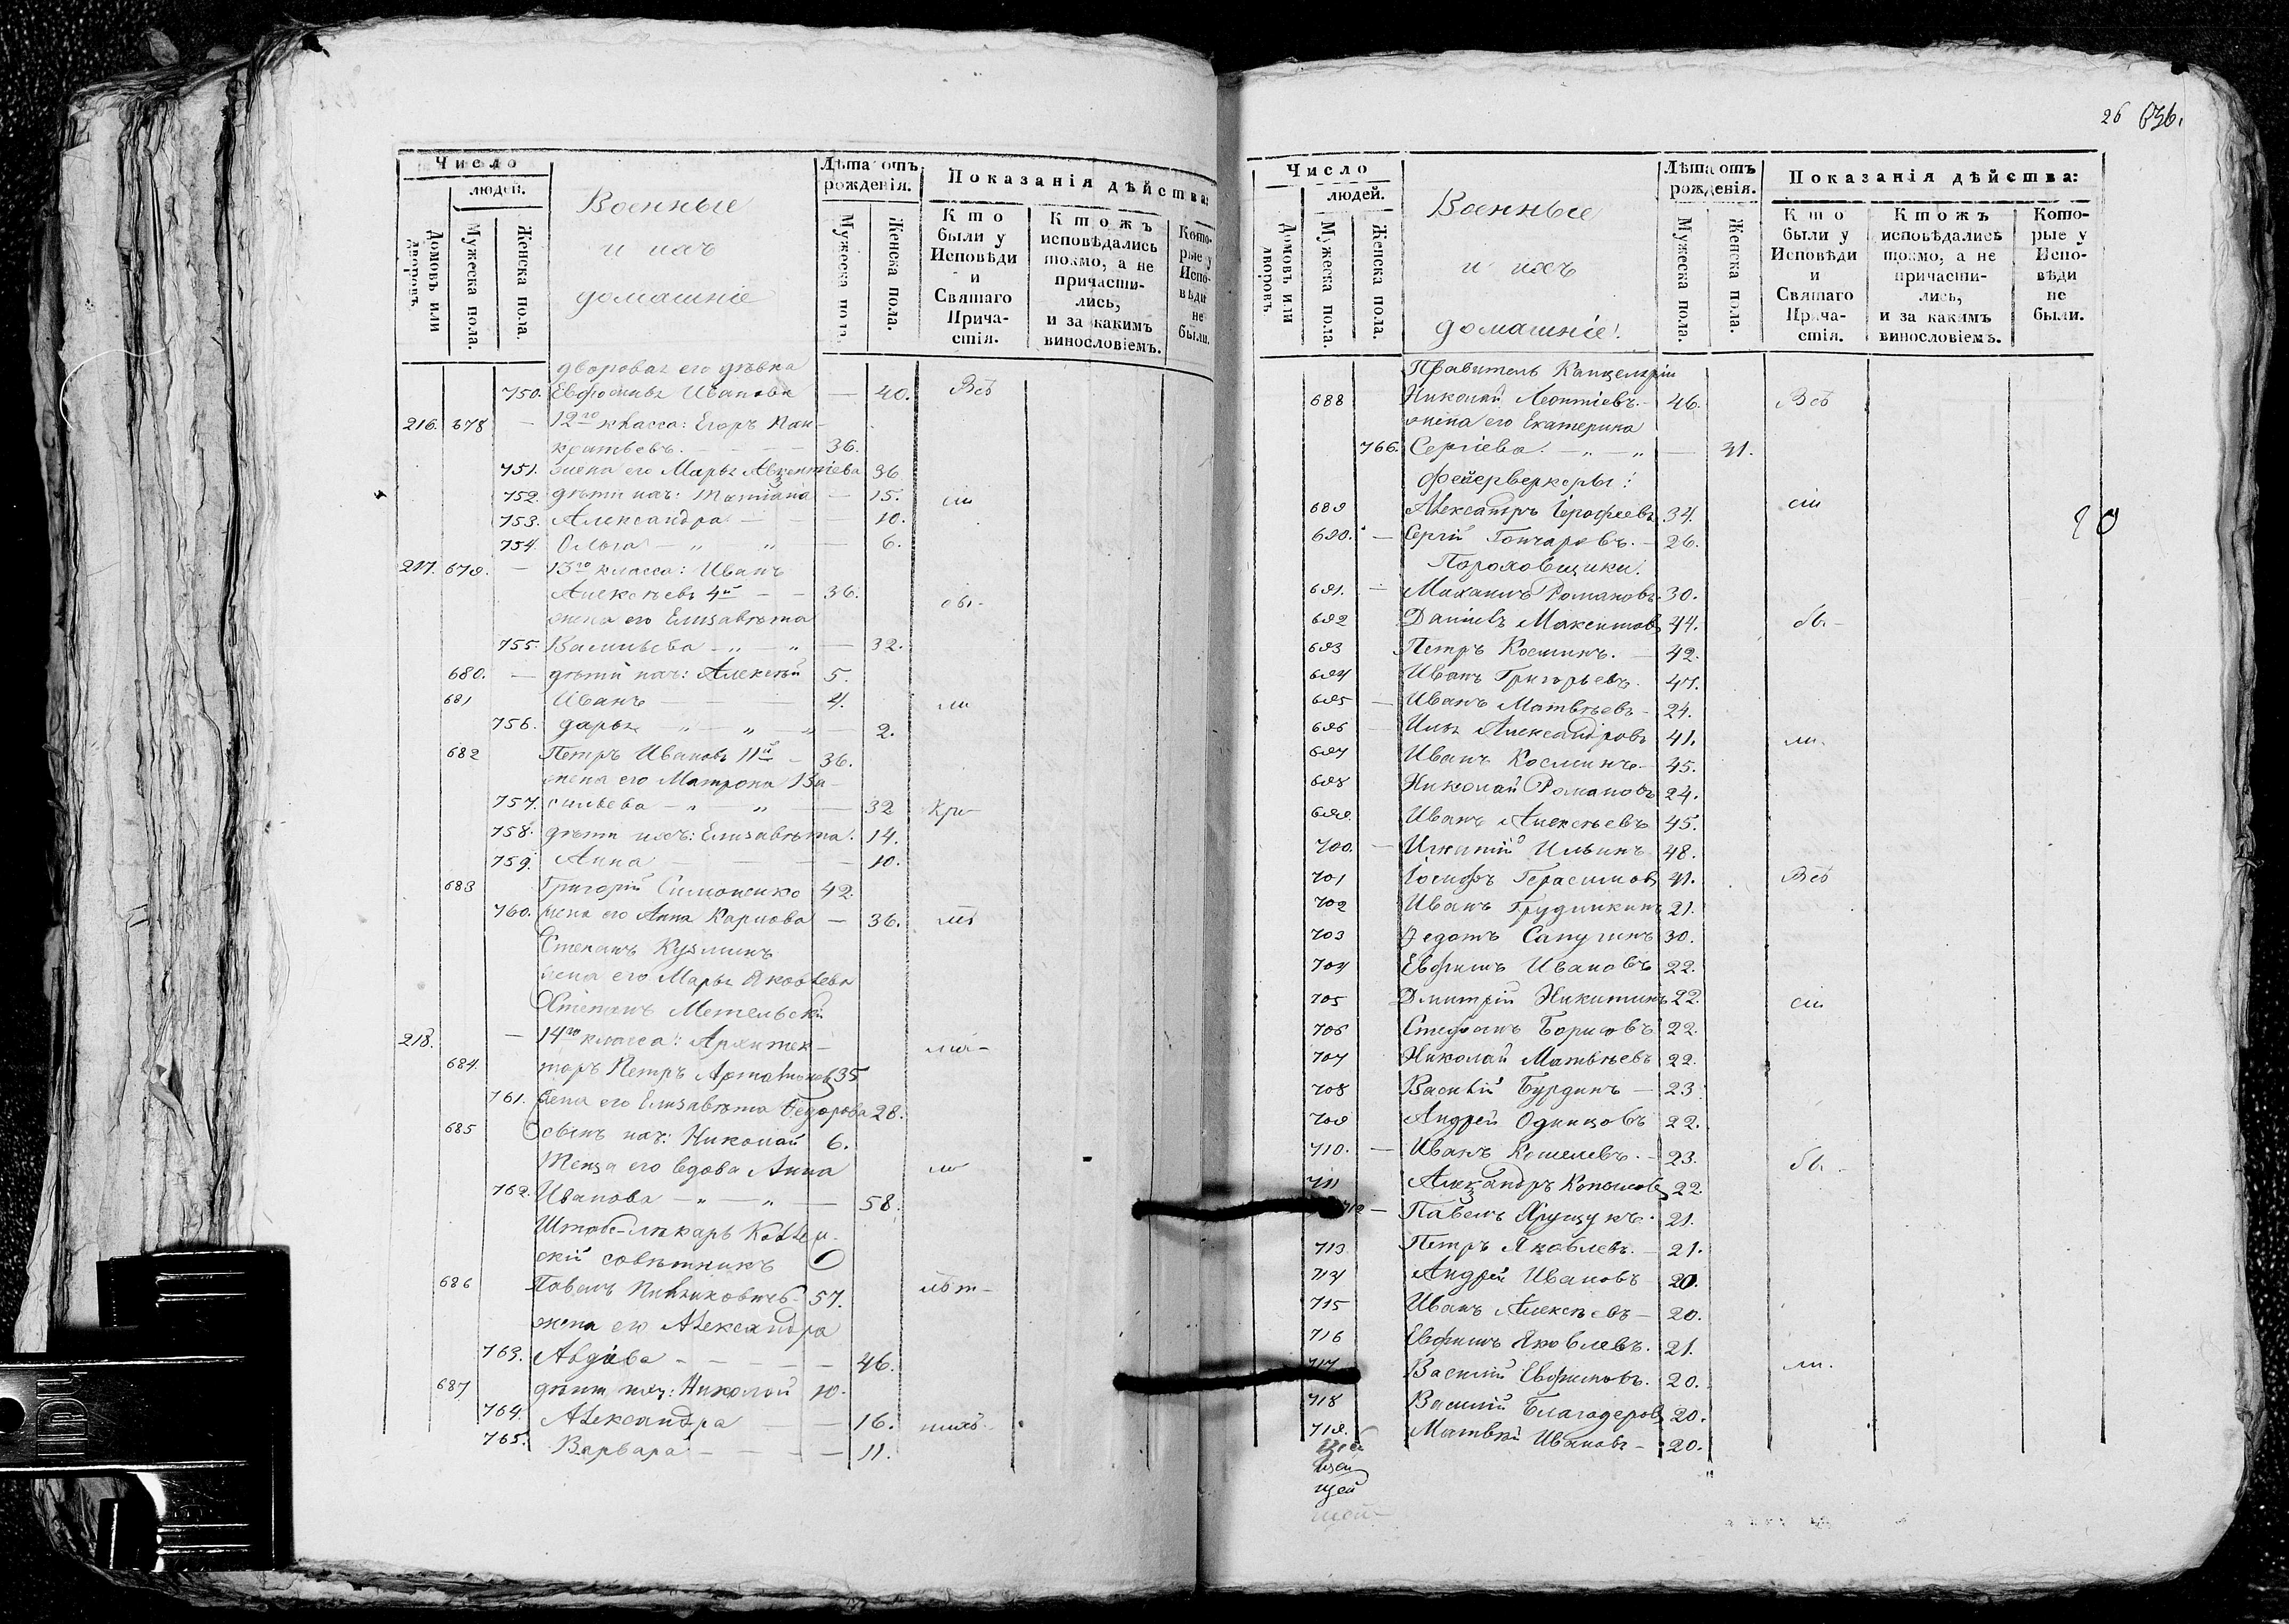 Число
людей.
Домовъ или дворовъ.
Мужеска пола.
Женска пола.
Военные
и ихъ
домашніе
Лѣта отъ рожденія.
Мужеска пола.
Женска пола.
Показанія дѣйства:
Кто были у Исповѣди и Святаго Прича-стія.
Ктожъ исповѣдались токмо, а не причасти-лись, и за какимъ винословіемъ.
Кото-рые у Испо-вѣди не были.
дворовая его дѣвка
750. Евфросинья Иванова — 40. Всѣ
216. 678 — 12го класса: Егоръ Пан-
кратьевъ. — 36.
751. жена его Марья Авксентіева 36
752. дѣти ихъ: Татіана — 15. сіи
753. Александра — 10.
754. Ольга — " " — 6.
217. 679. — 13го класса: Иванъ
Алексѣевъ 4й — 36. обы-
жена его Елизавѣта
755. Васильева — " — " — 32.
680. — дѣти ихъ: Алексѣй 5.
681 Иванъ — 4. ли
756. Дарья — " — " — 2.
682 Петръ Ивановъ 11й — 36.
жена его Матрона Ва-
757. сильева — " " — 32
758. дѣти ихъ: Елизавѣта. 14.
759. Анна — 10.
683 Григорій Симоненко 42.
760. жена его Анна Карпова — 36.
Степанъ Кузминъ
жена его Марья Яковлева
Степанъ Метельскій
218. — 14го класса: Архитек-
684. торъ Петръ 35
761. жена его Елизавѣта Ѳедорова 28.
685 сынъ ихъ: Николай 6.
Теща его вдова Анна
762. Иванова — " — " — 58.
Штабъ-лѣкарь Коллеж-
скій совѣтникъ
686 Павелъ 57.
жена его Александра
763. Авдѣева — 46.
687 дѣти ихъ: Николай 10.
764. Александра — 16.
765. Варвара — 11.
26 636.
Число
людей.
Домовъ или дворовъ.
Мужеска пола.
Женска пола.
Военные
и ихъ
домашніе!
Лѣта отъ рожденія.
Мужеска пола.
Женска пола.
Показанія дѣйства:
Кто были у Исповѣди и Святаго Прича-стія.
Ктожъ исповѣдались токмо, а не причасти-лись, и за какимъ винословіемъ.
Кото-рые у Испо-вѣди не были.
Правитель Канцеляріи
688 Николай Леонтіевъ. — 46. Всѣ
жена его Екатерина
766. Сергіева. — " — " — 31.
Фейерверкеры:
689 Александръ Іерофеевъ 34. сіи
690. — Сергій Гончаровъ. — 26.
Пороховщики:
691. — Михаилъ Романовъ. 30.
692 Даніилъ Максимовъ 44. бы-
693 Петръ Косминъ. — 42.
694 Иванъ Григорьевъ. 47.
695 — Иванъ Матвѣевъ — 24.
696 Илья Александровъ 41. ли.
697 Иванъ Косминъ — 45.
698 Николай Романовъ 24.
699. Иванъ Алексѣевъ 45.
700. — Игнатій Ильинъ 48.
701 Іосифъ Герасимовъ 41. Всѣ
702 Иванъ Грудинкинъ 21.
703 Ѳедотъ Сапугинъ 30.
704 Евфимъ Ивановъ 22.
705 Дмитрій Никитинъ 22. сіи
706 Стефанъ Борисовъ 22.
707 Николай Матвѣевъ 22.
708 Василій Бурдинъ — 23
709 Андрей Одинцовъ 22.
710. — Иванъ Кошелевъ. — 23. бы-
711 Александръ Копыловъ 22.
712 — Павелъ 21.
713 Петръ Яковлевъ. — 21.
714 Андрей Ивановъ 20.
715 Иванъ Алексѣевъ — 20.
716 Евфимъ Яковлевъ. 21.
717 Василій Евфимовъ. 20. ли.
718 Василій Благодеровъ 20.
719. Матвѣй Ивановъ — 20.